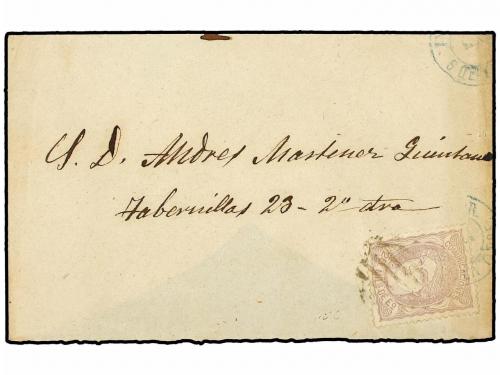 S. D. Andres Martinez Quintana
Tabernillas 23 - 2º dra